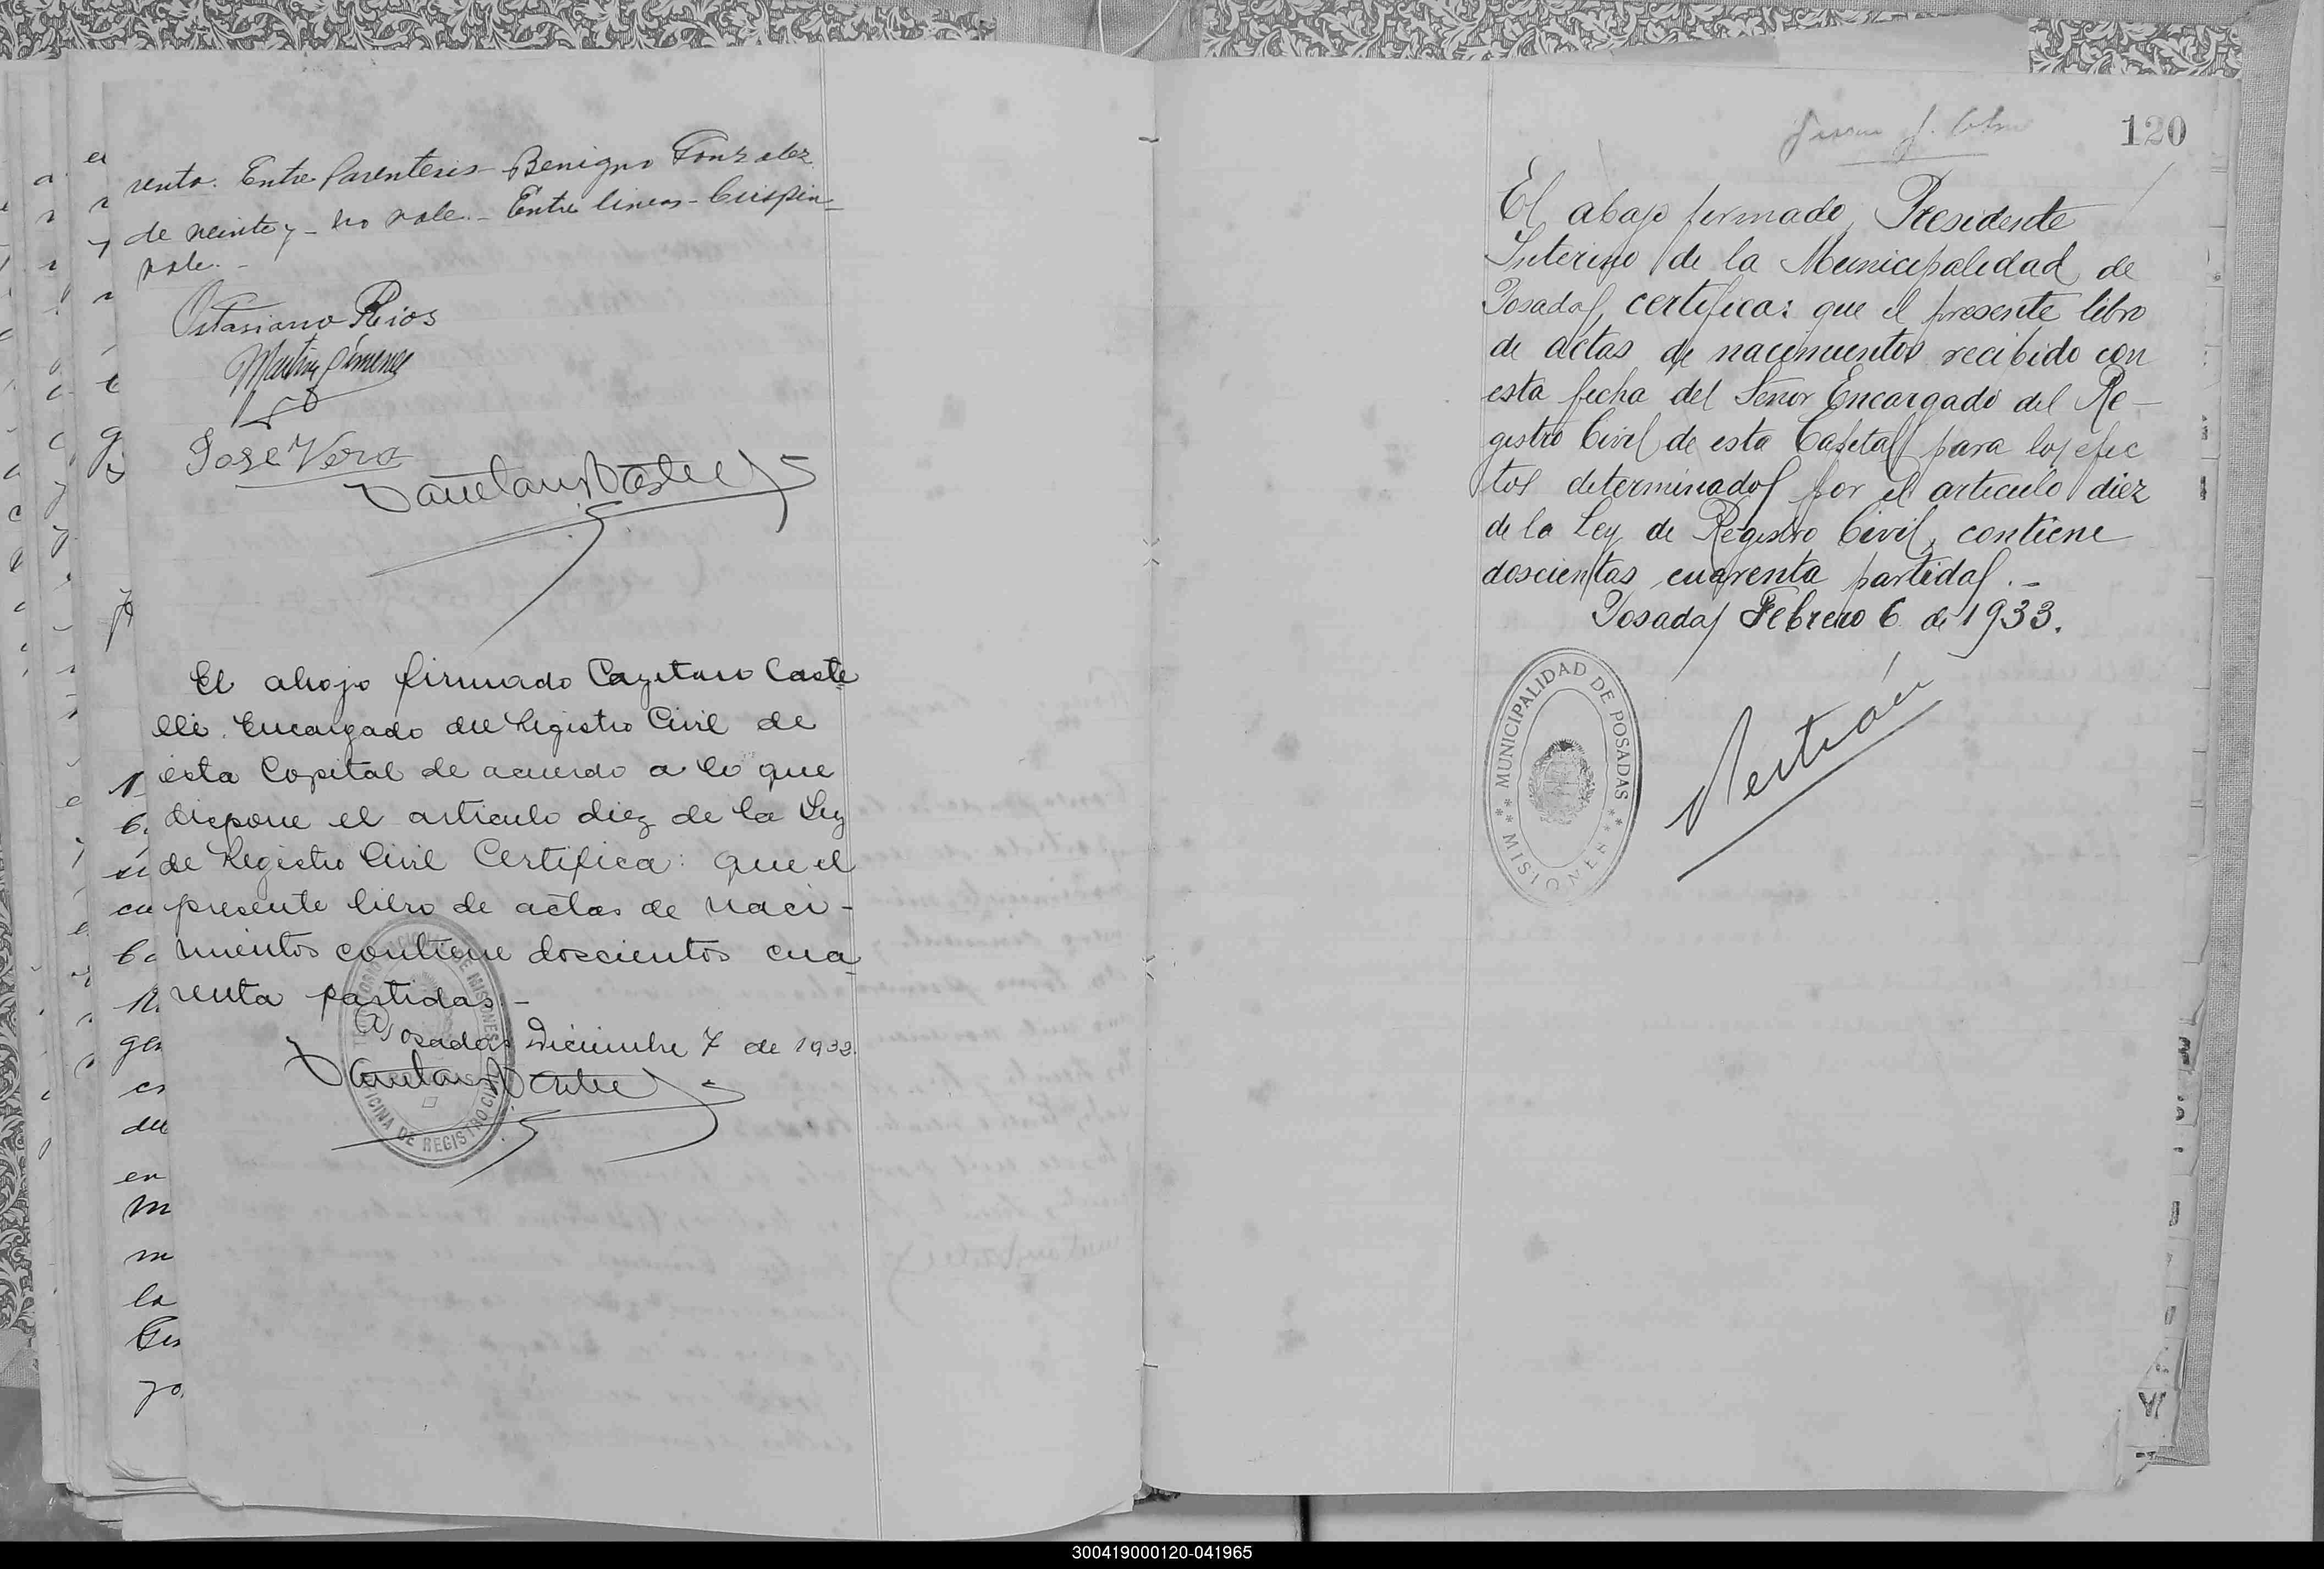 vento. Entre parentesis - Benigno Gonzalez
de veinte y - no vale. - Entre lineas - Crispin -
vale. -
Ostasiano Rios
Martin Gimenez
José Vera
El abajo firmado Cayetano Caste
lli. Encargado del Registro Civil de
esta Capital de acuerdo a lo que
dispone el articulo diez de la Ley
de Registro Civil Certifica: que el
presente libro de actas de naci-
mientos contiene doscientos cua-
renta partidas. -
Posadas Diciembre 7 de 1932.
MISIONES
OFICINA DE REGISTRO CIVIL
120
El abajo firmado, Presidente
Interino de la Municipalidad de
Posadas, certifica: que el presente libro
de actas de nacimientos recibido con
esta fecha del Señor Encargado del Re-
gistro Civil de esta Capital para los efec
tos determinados por el articulo diez
de la Ley de Registro Civil, contiene
doscientas cuarenta partidas. -
Posadas Febrero 6 de 1933.
MUNICIPALIDAD DE POSADAS
MISIONES
300419000120-041965